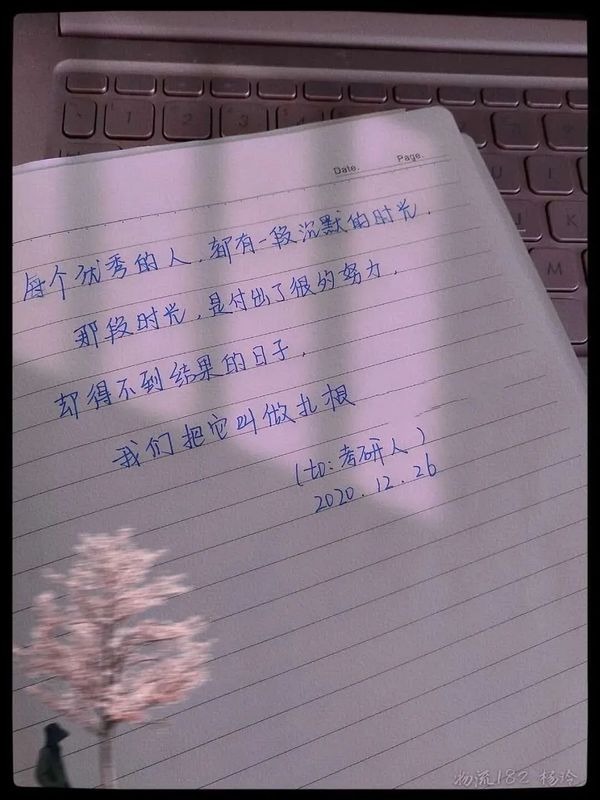 Date.
Page.
每个优秀的人,都有一段沉默的时光.
那段时光,是付出了很多努力,
却得不到结果的日子,
我们把它叫做扎根
(to:考研人)
2020.12.26
1
U
I
M
物流182 杨冷